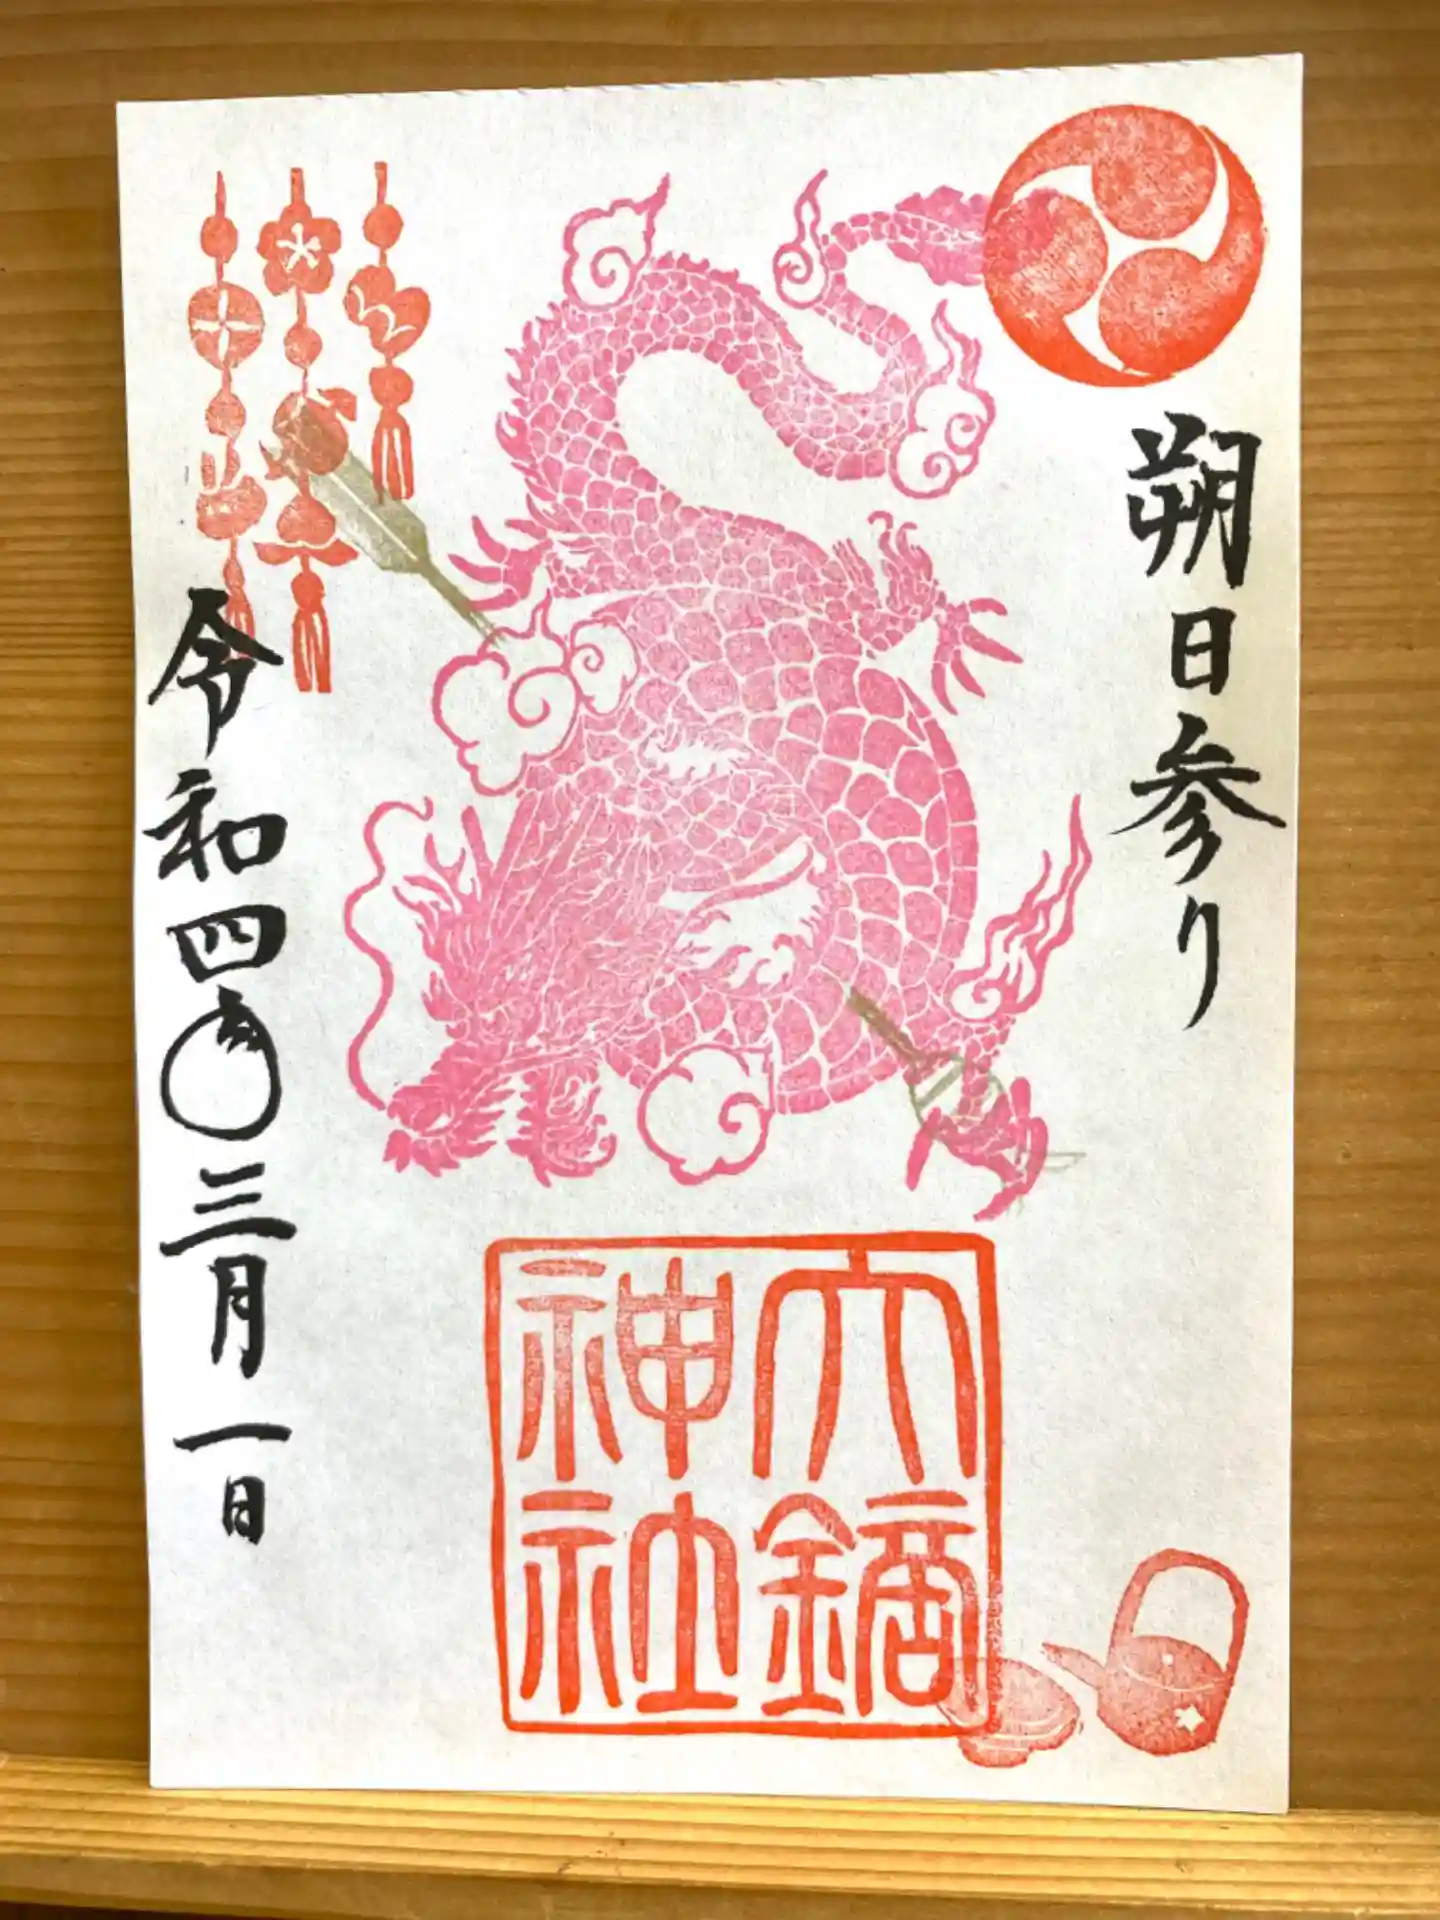 朔日参り
大鏑
神社
令和四年三月一日